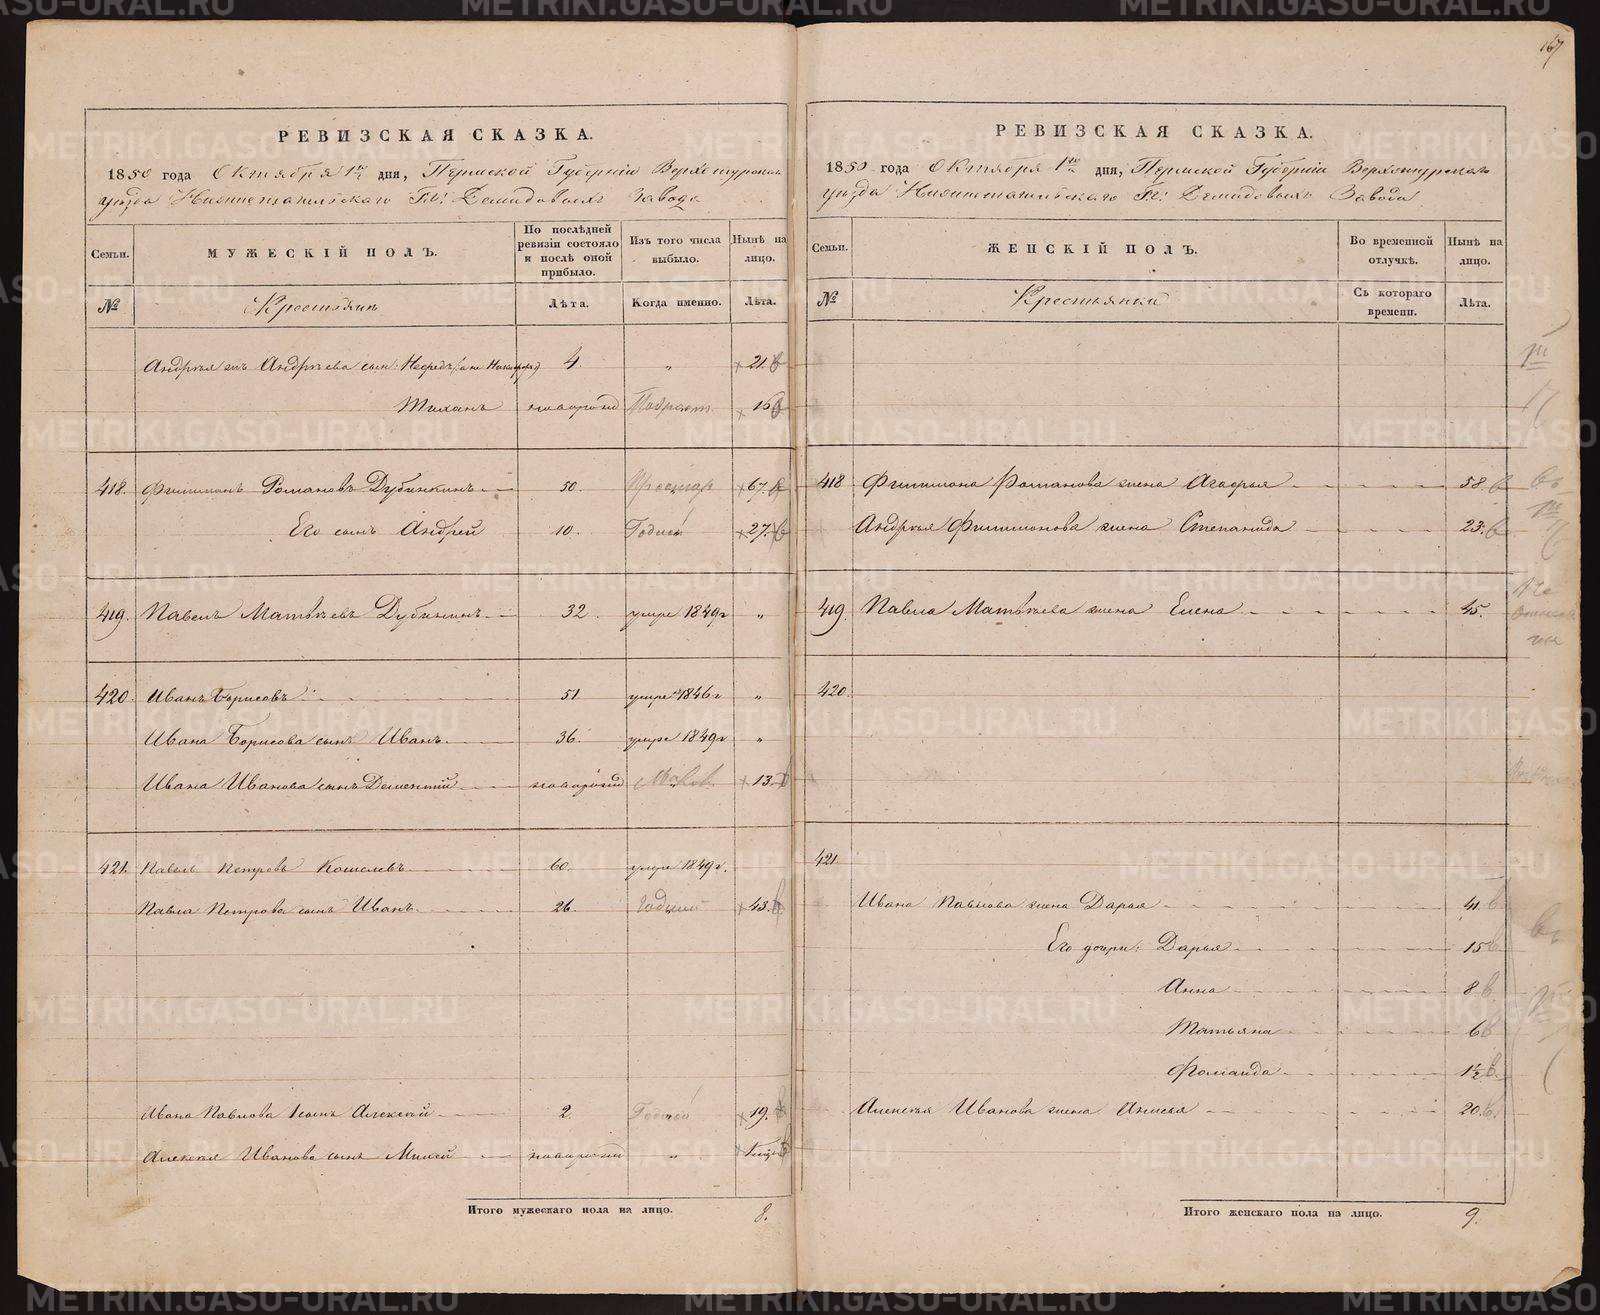 167
РЕВИЗСКАЯ СКАЗКА.
1850 года Октября 1го дня, Пермской Губерніи Верхотурскаго
уѣзда Нижнетагильскаго Г.г. Демидовыхъ Завода
Семьи. МУЖЕСКІЙ ПОЛЪ. По послѣдней ревизіи состояло и послѣ оной прибыло. Изъ того числа выбыло. Нынѣ на лицо.
№ Крестьянъ Лѣта. Когда именно. Лѣта.
Андрея Андреева сын: 4. „ 21.
Тихонъ новорожд 16
418. Филимонъ Романовъ Дубинкинъ 50. 67.
Его сынъ Андрей 10. Годный 27.
419. Павелъ Матвѣевъ Дубининъ 32. умре 1849г „
420. Иванъ Борисовъ 51 умре 1846г „
Ивана Борисова сынъ Иванъ. 36. умре 1849г „
Ивана Иванова сынъ Дементій новорожд 13.
421. Павелъ Петровъ Кошелевъ 60. умре 1849г.
Павла Петрова сынъ Иванъ. 26. Годный 43.
Ивана Павлова 1 сынъ Алексей 2. Годный 19.
Алексея Иванова сынъ новорожд „
Итого мужескаго пола на лицо. 8.
РЕВИЗСКАЯ СКАЗКА.
1850 года Октября 1го дня, Пермской Губерніи Верхотурскаго
уѣзда Нижнетагильскаго Г.г. Демидовыхъ Завода.
Семьи. ЖЕНСКІЙ ПОЛЪ. Во временной отлучкѣ. Нынѣ на лицо.
№ Крестьянки Съ котораго времени. Лѣта.
418 Филимона Романова жена Агафья 58.
Андрея Филимонова жена Степанида 23.
419. Павла Матвѣева жена Елена 45.
420.
421
Ивана Павлова жена Дарья 41.
Его дочери: Дарья 15
Анна 8
Татьяна 6
1½
Алексея Иванова жена Анисья 20.
Итого женскаго пола на лицо. 9.
METRIKI.GASO-URAL.RU